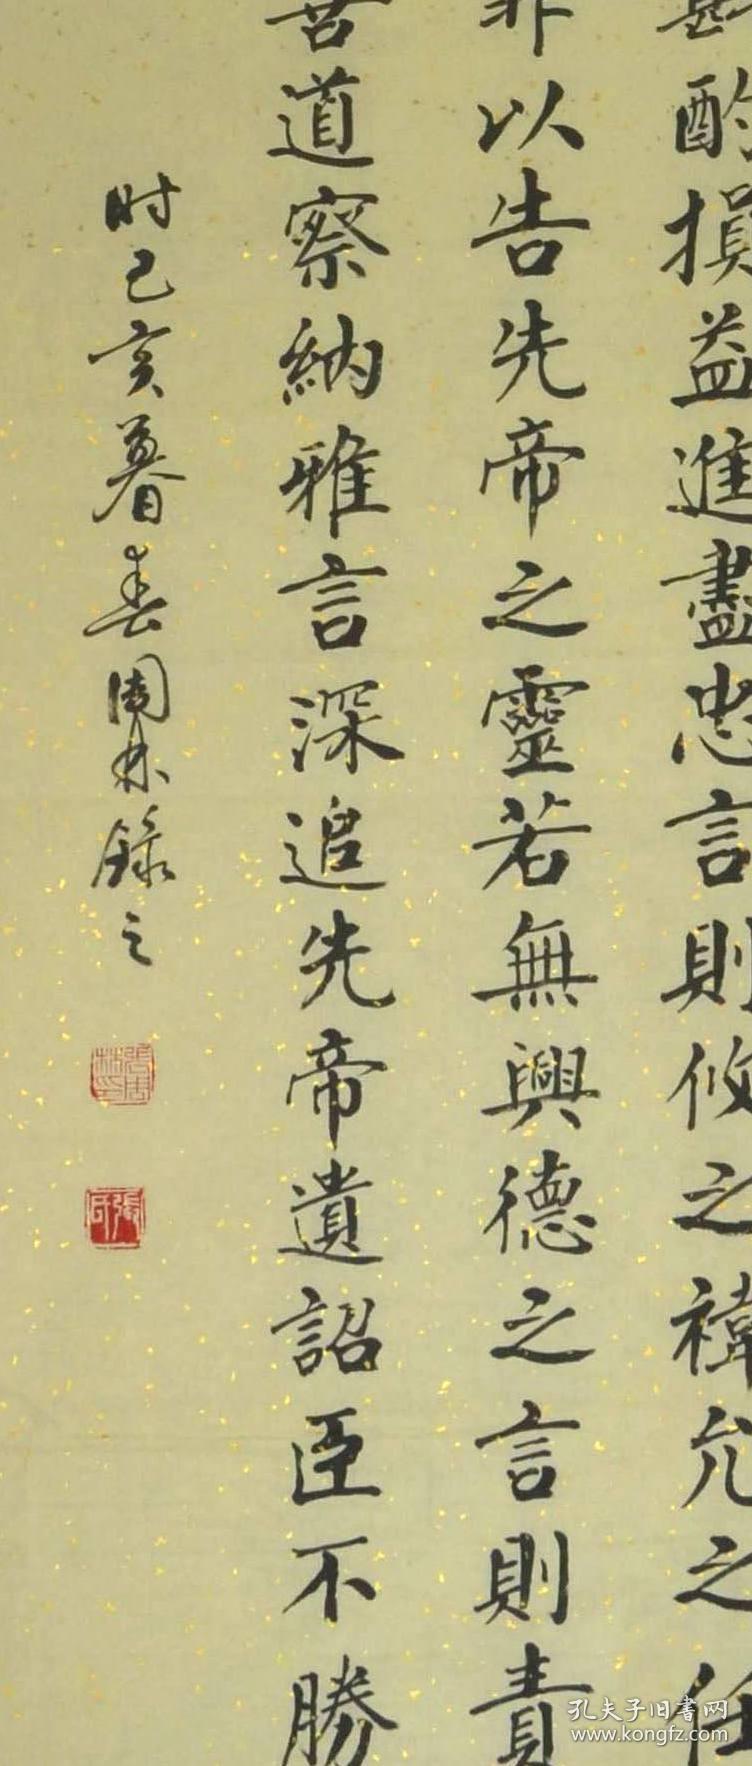 斟酌損益進盡忠言則攸之禕允之任
非以告先帝之靈若無興德之言則責
善道察納雅言深追先帝遺詔臣不勝
时己亥暮春周林錄之
張周林印
張氏
孔夫子旧書网
www.kongfz.com